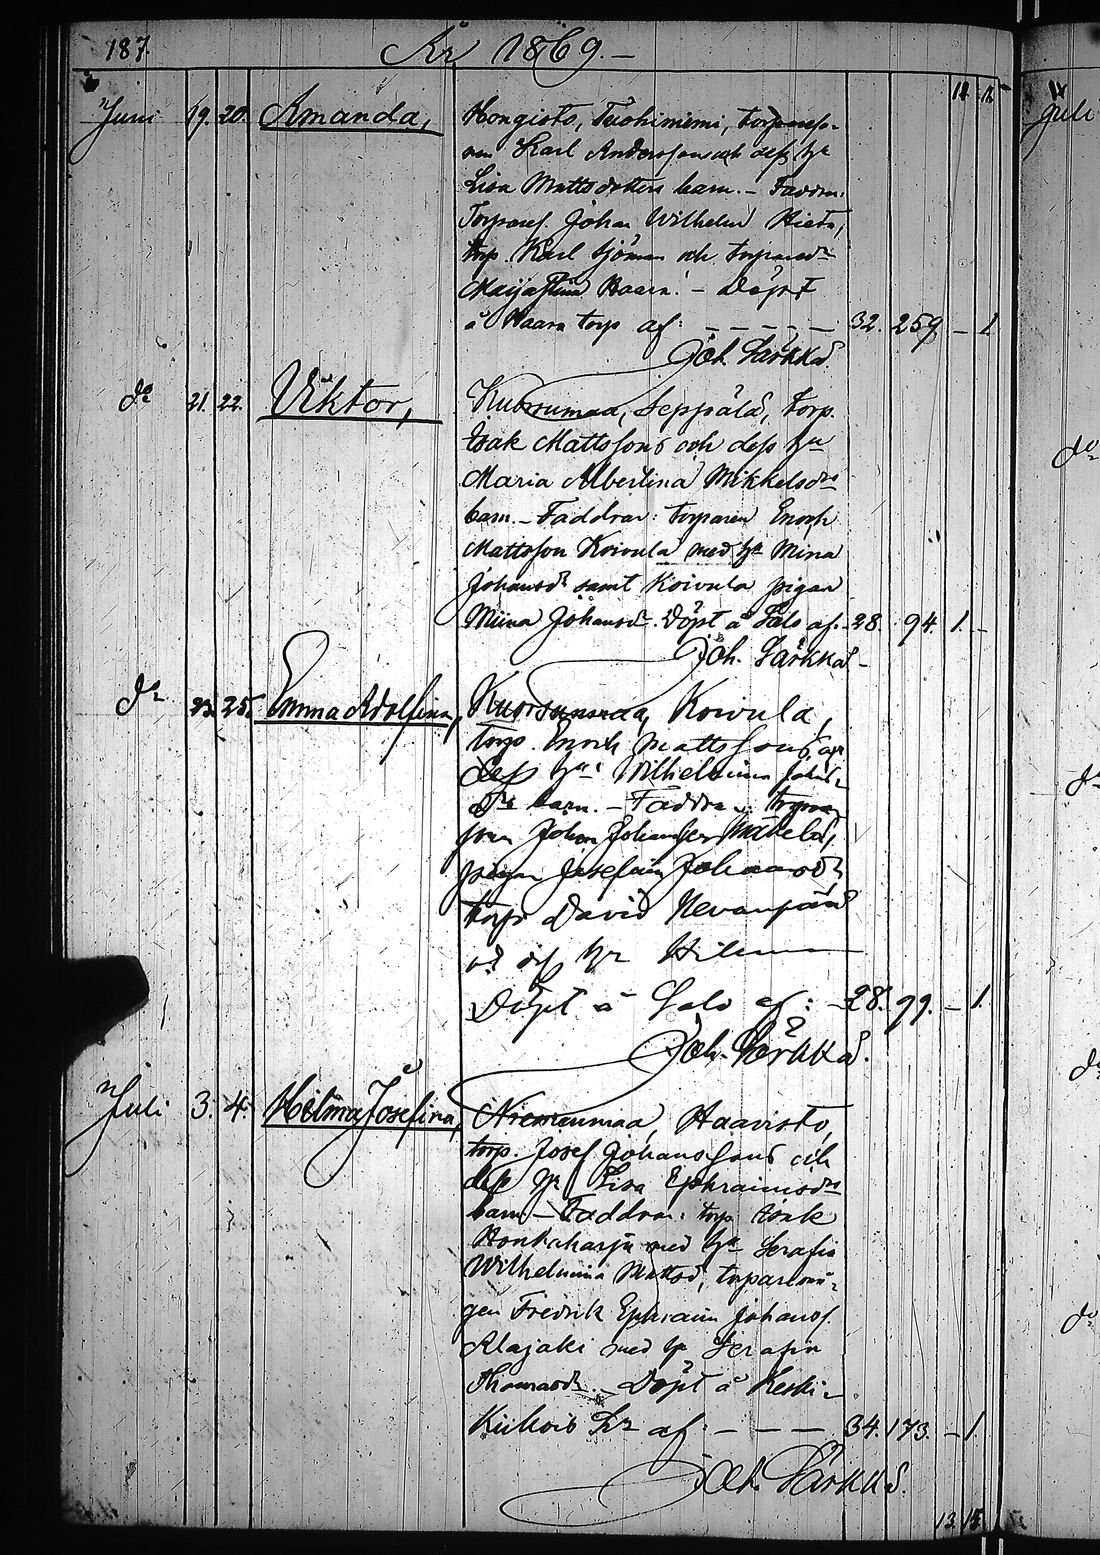 187. År 1869.-
11 12
Juni 19. 20. Amanda, Hongisto, Tuohiniemi, torpareso-
nen Karl Anderssons och dess hu
Lisa Mattsdotters barn. - Faddrar:
Torparef. Johan Wilhelm Rieto,
torp. Karl Sjöman och torpared:r
Maija Stina Haara. - Döpt
å Haara torp af: - - - - - 32. 259. - 1
Joh. Särkkä.
d:o 21. 22. Viktor, Kuorsumaa, Seppälä, torp.
Isak Mattssons och dess hu
Maria Albertina Mikkelsd:rs
barn. - Faddrar: torparen Enoch
Mattsson Koivula med hu Mina
Johansd:r samt Koivula pigan
Miina Johansd:r. Döpt å Salo af. - 28. 94. 1. -
Joh. Särkkä -
d:o 23. 25. Emma Adolfina, Kuorsumaa, Koivula,
torp. Enoch Mattssons och
dess hu: Wilhelmina Johans-
d:rs barn. - Faddrar:
Johan Johansson Mäkelä,
pigan Josefina Johansd:r
torp. David Nevanpää
och dess hu Hilma
Döpt å Salo af: - 28. 99. - 1.
Joh. Särkkä.
Juli 3. 4. Hilma Josefina, Niemenmaa, Haavisto,
torp. Josef Johanssons och
dess hu Lisa Ephraimsd:rs
barn - Faddrar: torp. Isak
Honkaharju med hu Serafia
Wilhelmina Mattsd., torparemå-
gen Fredrik Ephraim Johansf.
Alajaki med hu Serafia
Thomasd:r. - Döpt å Keski-
Kuhois h:n af: - - - - 34. 173. - 1.
Joh. Särkkä.
13. 15.
Juli
d:o
d:o
d:o
d:o